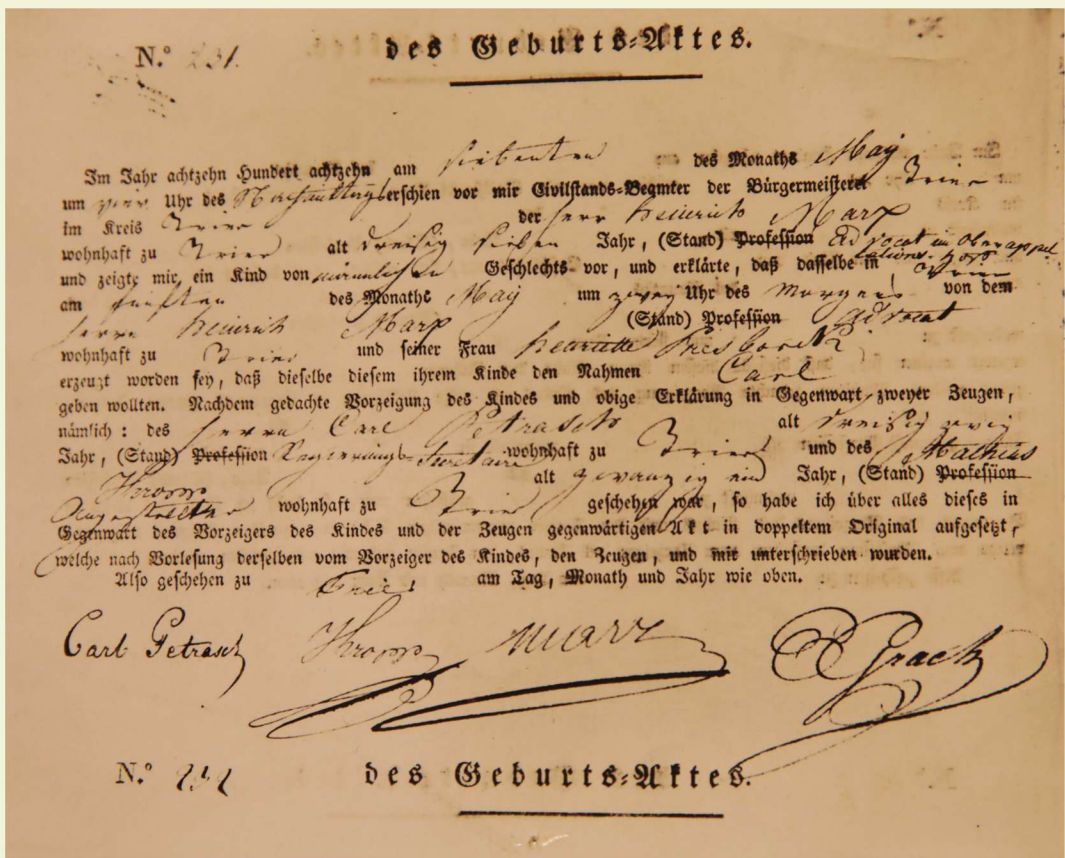 N.º 231. des Geburts=Aktes.
Im Jahr achtzehn Hundert achtzehn am siebenten des Monaths May
um vier Uhr des Nachmittags erschien vor mir Civilstands-Beamter der Bürgermeisterei Trier
im Kreis Trier der Herr Heinrich Marx
wohnhaft zu Trier alt dreisig sieben Jahr, (Stand) Profession Advocat im Oberappel
lations-Hofe
und zeigte mir, ein Kind von männlichen Geschlechts vor, und erklärte, daß dasselbe in Trier
am fünften des Monaths May um zwey Uhr des Morgens von dem
Herrn Heinrich Marx (Stand) Profession Advocat
wohnhaft zu Trier und seiner Frau Henriette Presborck
erzeuzt worden sey, daß dieselbe diesem ihrem Kinde den Nahmen Carl
geben wollten. Nachdem gedachte Vorzeigung des Kindes und obige Erklärung in Gegenwart zweyer Zeugen,
nämlich: des Herrn Carl Petrasch alt dreisig zwei
Jahr, (Stand) Profession Regierungs-Secretaire wohnhaft zu Trier und des Mathias
Kropp alt zwanzig ein Jahr, (Stand) Profession
Angestellter wohnhaft zu Trier geschehen war, so habe ich über alles dieses in
Gegenwart des Vorzeigers des Kindes und der Zeugen gegenwärtigen Akt in doppeltem Original aufgesetzt,
welche nach Vorlesung derselben vom Vorzeiger des Kindes, den Zeugen, und mir unterschrieben wurden.
Also geschehen zu Trier am Tag, Monath und Jahr wie oben.
Carl Petrasch Kropp Marx E Grach
N.º 232 des Geburts=Aktes.